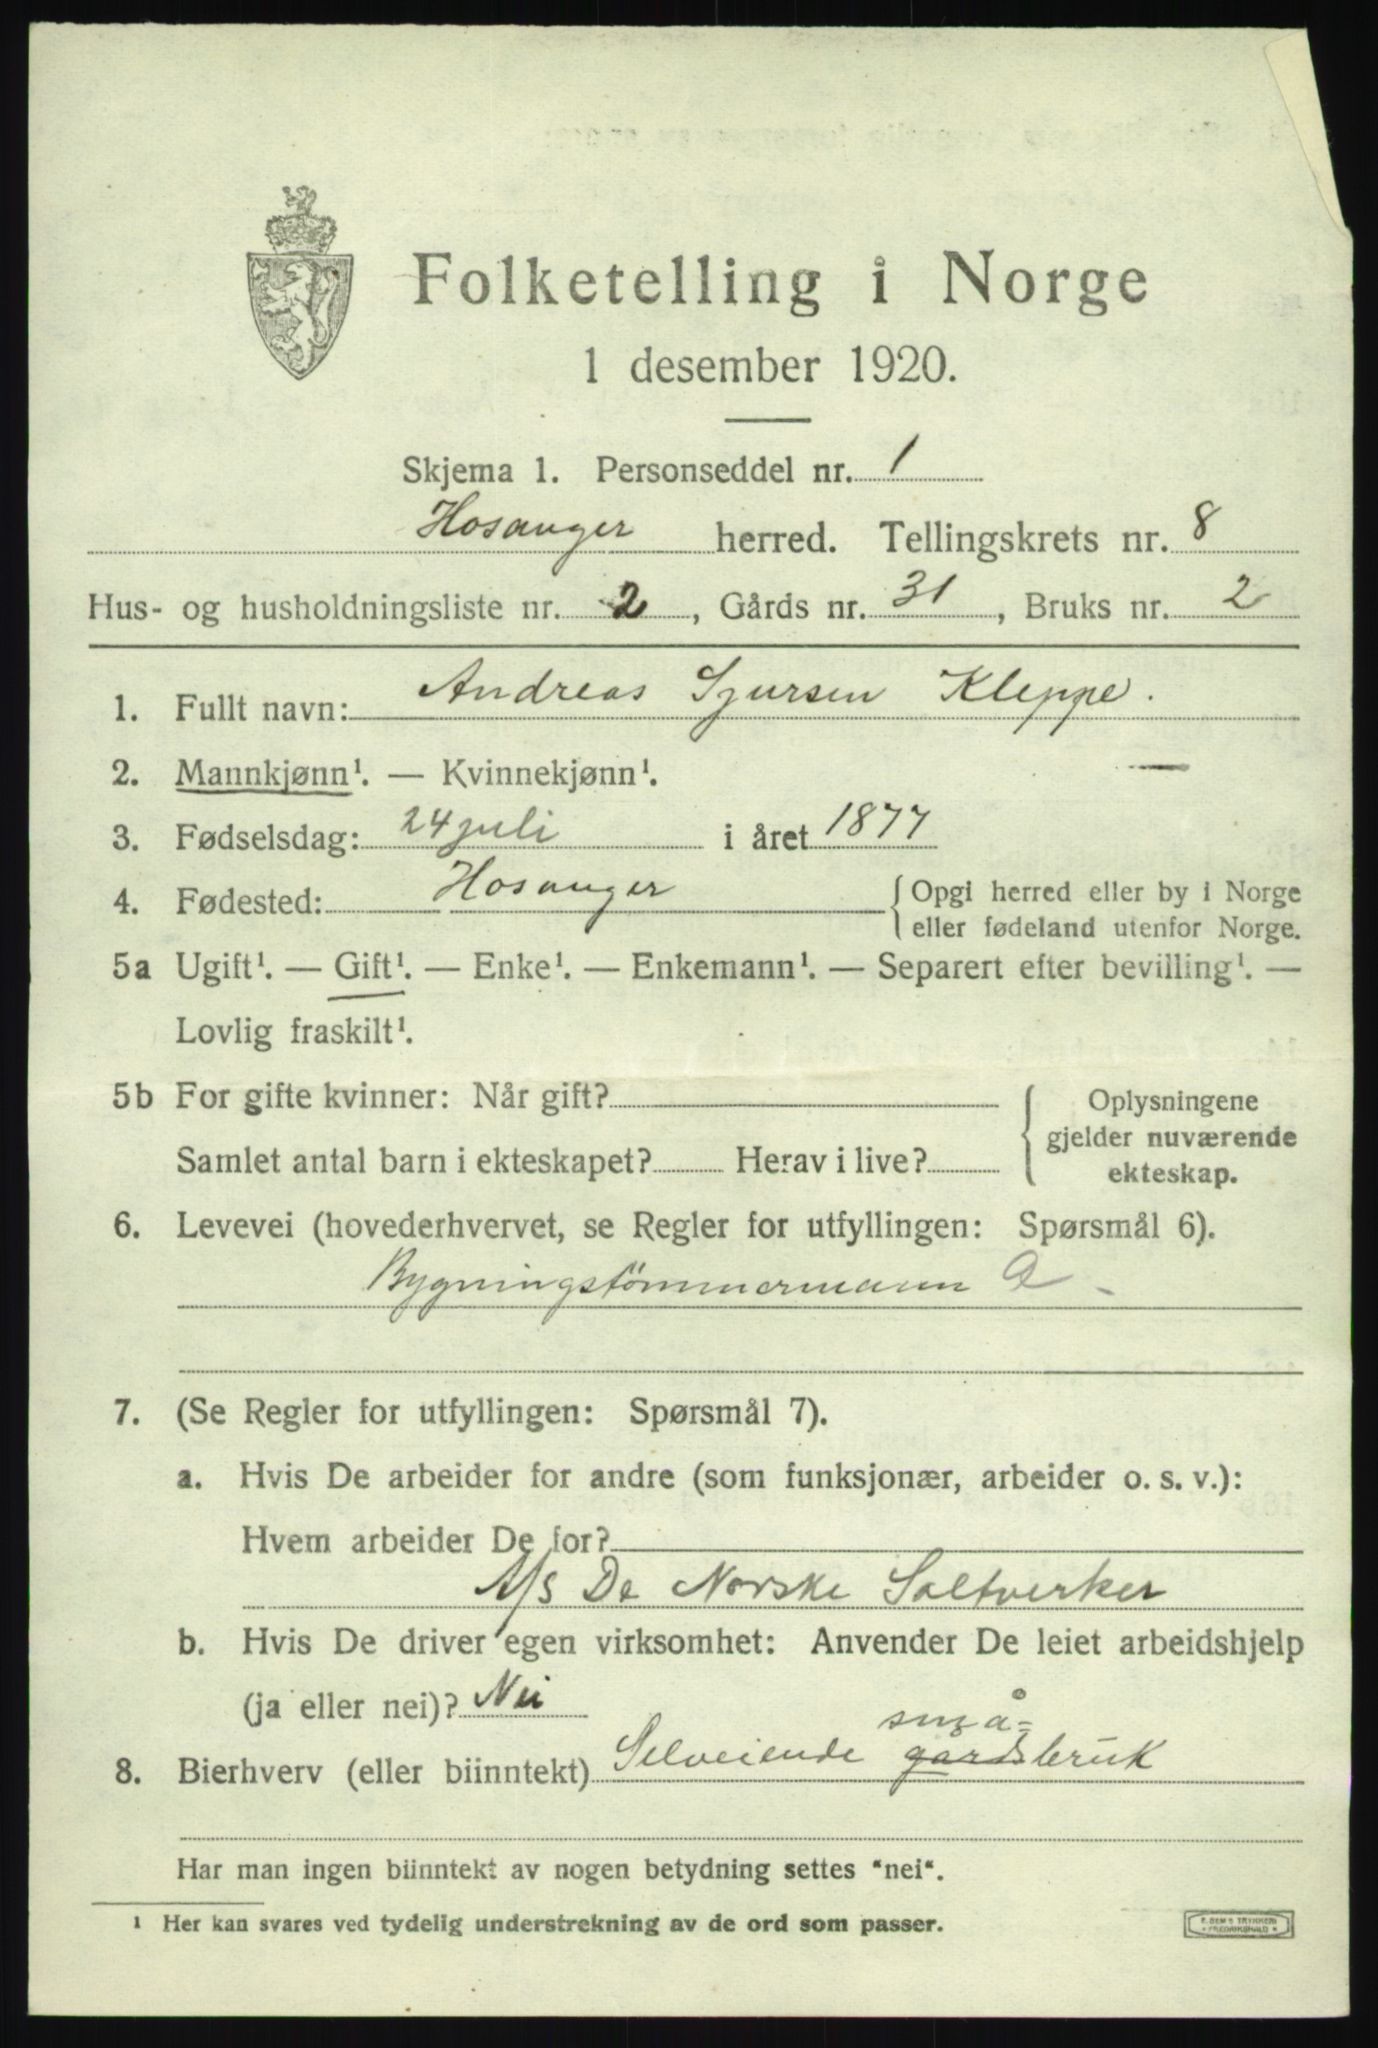 Folketelling i Norge
1 desember 1920.
Skjema 1. Personseddel nr. 1
Hosanger herred. Tellingskrets nr. 8
Hus- og husholdningsliste nr. 2, Gårds nr. 31, Bruks nr. 2
1. Fullt navn: Andreas Sjursen Kleppe.
2. Mannkjønn¹. — Kvinnekjønn¹. —
3. Fødselsdag: 24 juli i året 1877
4. Fødested: Hosanger { Opgi herred eller by i Norge
eller fødeland utenfor Norge.
5a Ugift¹. — Gift¹. — Enke¹. — Enkemann¹. — Separert efter bevilling¹. —
Lovlig fraskilt¹.
5b For gifte kvinner: Når gift? { Oplysningene
gjelder nuværende
Samlet antal barn i ekteskapet? Herav i live?
ekteskap.
6. Levevei (hovederhvervet, se Regler for utfyllingen: Spørsmål 6).
Bygningstömmermann a
7. (Se Regler for utfyllingen: Spørsmål 7).
a. Hvis De arbeider for andre (som funksjonær, arbeider o. s. v.):
Hvem arbeider De for?
A/S De Norske Saltverker
b. Hvis De driver egen virksomhet: Anvender De leiet arbeidshjelp
(ja eller nei)? Nei
små=
8. Bierhverv (eller biinntekt) Selveiende gardsbruk
Har man ingen biinntekt av nogen betydning settes "nei".
¹ Her kan svares ved tydelig understrekning av de ord som passer.
E. SEM'S TRYKKERI
FREDRIKSHALD